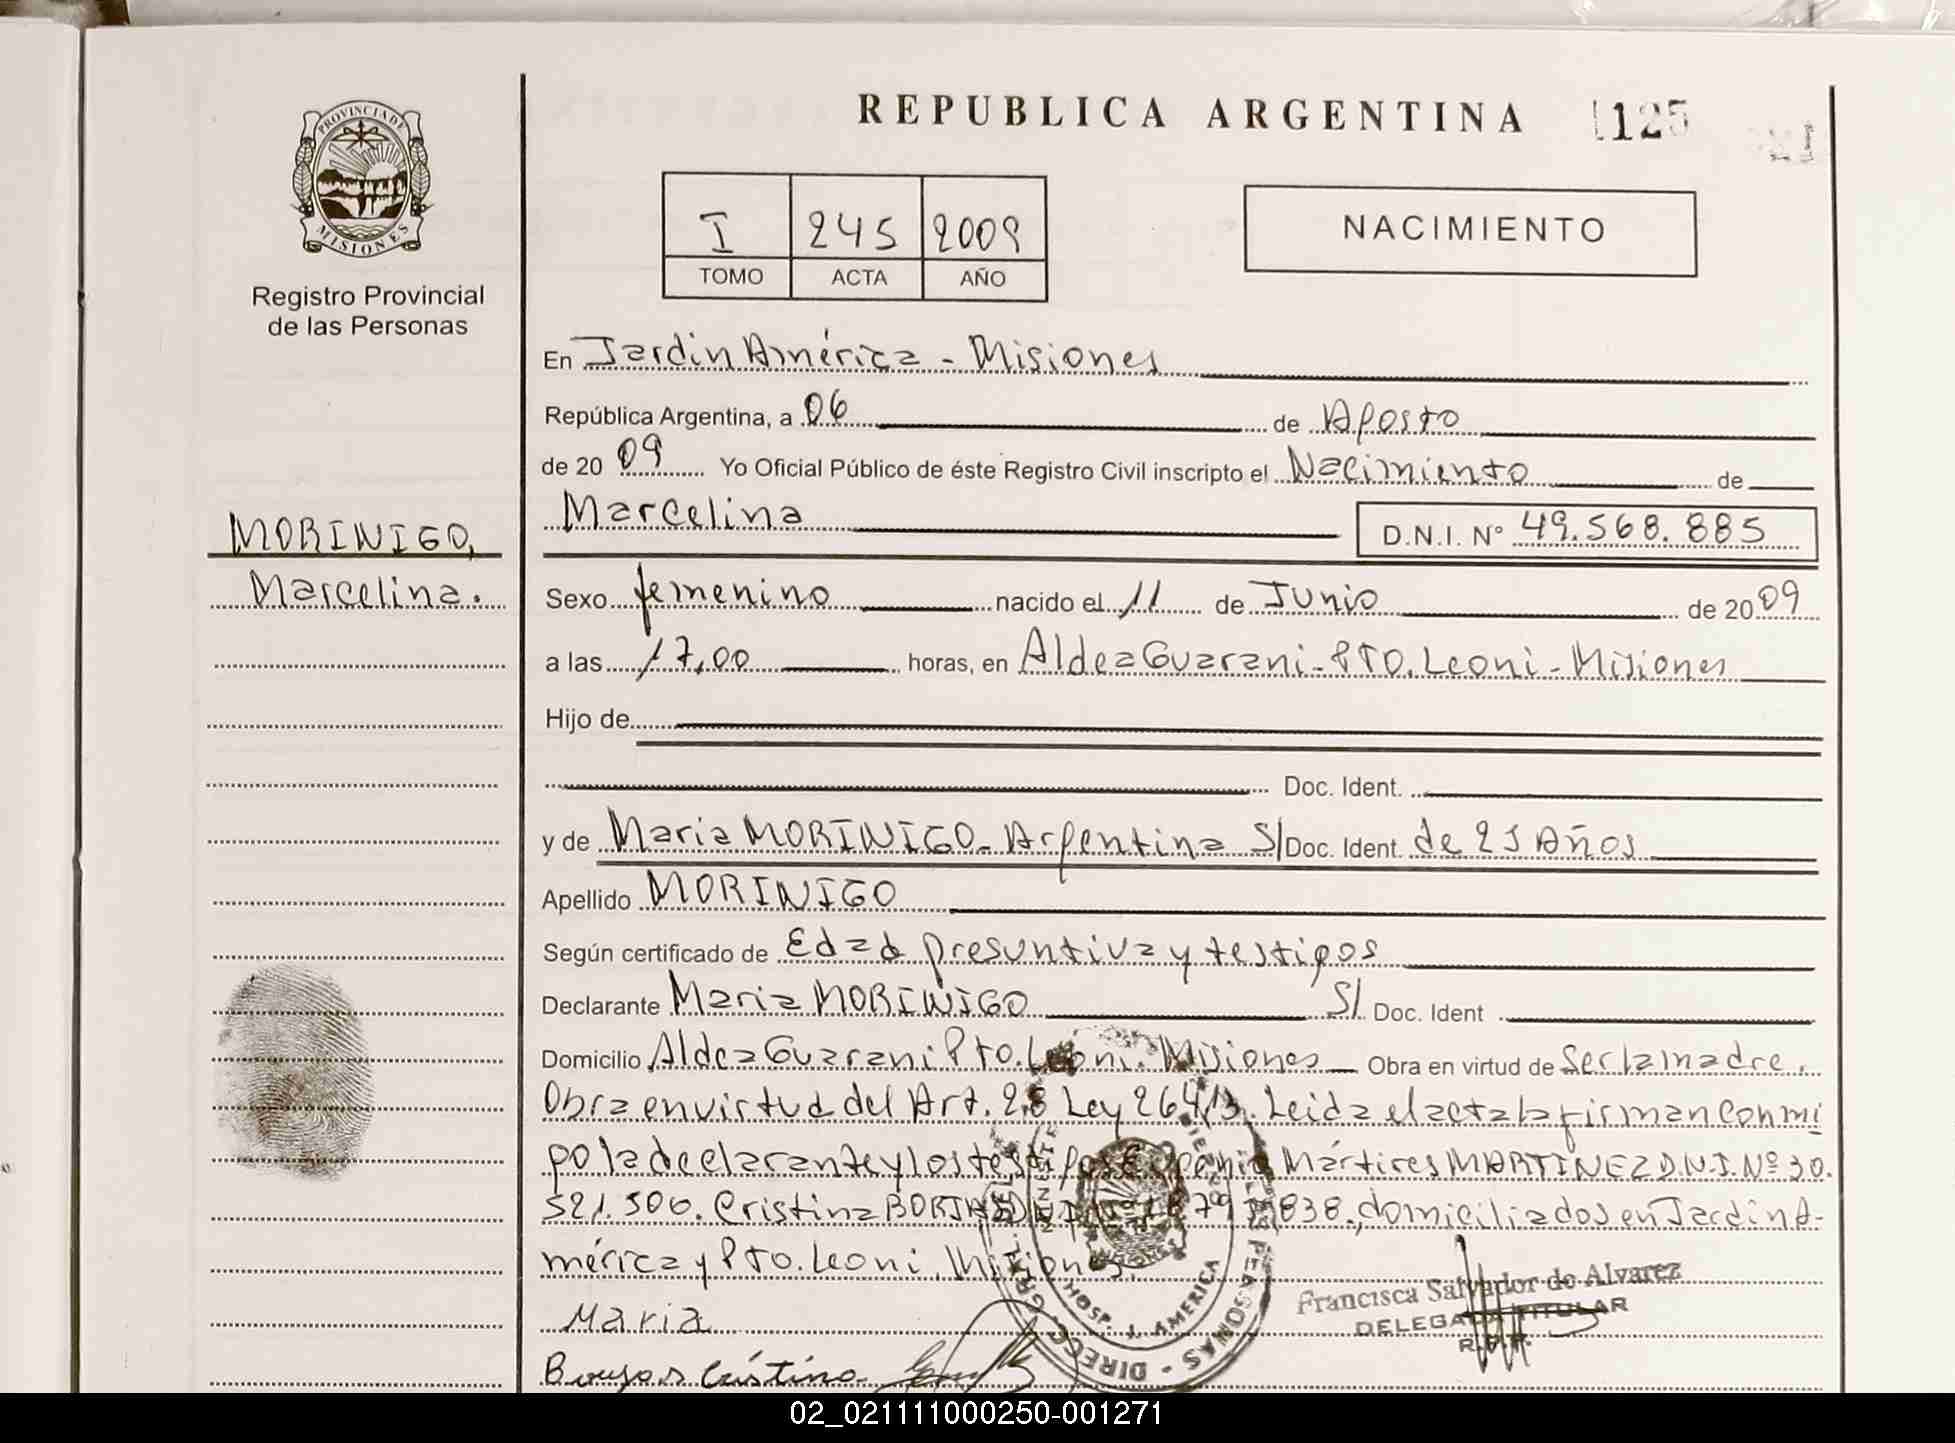 REPUBLICA ARGENTINA 1125
PROVINCIA DE
MISIONES
Registro Provincial
de las Personas
I 245 2009
TOMO ACTA AÑO
NACIMIENTO
En Jardin América - Misiones
República Argentina, a 06 de Agosto
de 20 09 Yo Oficial Público de éste Registro Civil inscripto el Nacimiento de
Marcelina D.N.I. N° 49.568.885
MORINIGO,
Marcelina.
Sexo femenino nacido el 11 de Junio de 20 09
a las 17,00 horas, en Aldea Guarani - Pto. Leoni - Misiones
Hijo de
Doc. Ident.
y de Maria MORINIGO - Argentina S/ Doc. Ident. de 25 Años
Apellido MORINIGO
Según certificado de Edad presuntiva y testigos
Declarante Maria MORINIGO S/ Doc. Ident
Domicilio Aldea Guarani Pto. Leoni. Misiones Obra en virtud de Ser la madre.
Obra en virtud del Art. 28 Ley 26413. Leida el acta la firman conmi
go la declarante y los testigos Mártires MARTINEZ D.N.I. Nº 30.
521.506. Cristina 838., domiciliados en Jardin A-
mérica y Pto. Leoni. Misiones.
Maria
HOSP. J. AMERICA
PERSONAS - DIRECC. GRAL.
Francisca Salvador de Alvarez
DELEGADA TITULAR
R.P.P.
Cristina
02_021111000250-001271